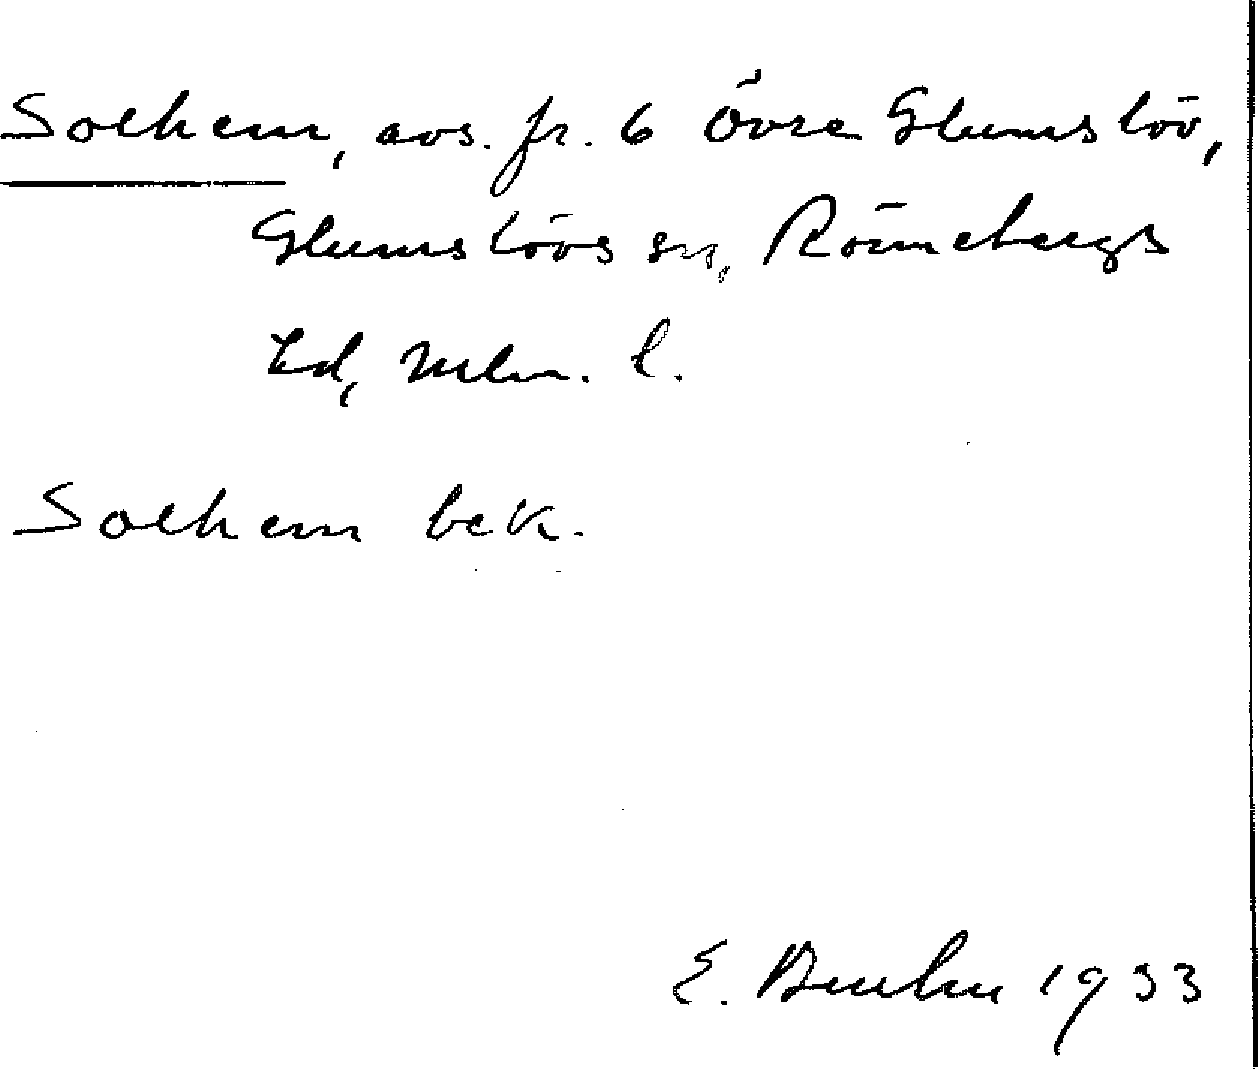 Solhem, avs. fr. 6 Övre Glumslöv,
Glumslövs sn, Rönnebergs
hd, Mlm. l.
Solhem bek.
E. 1933